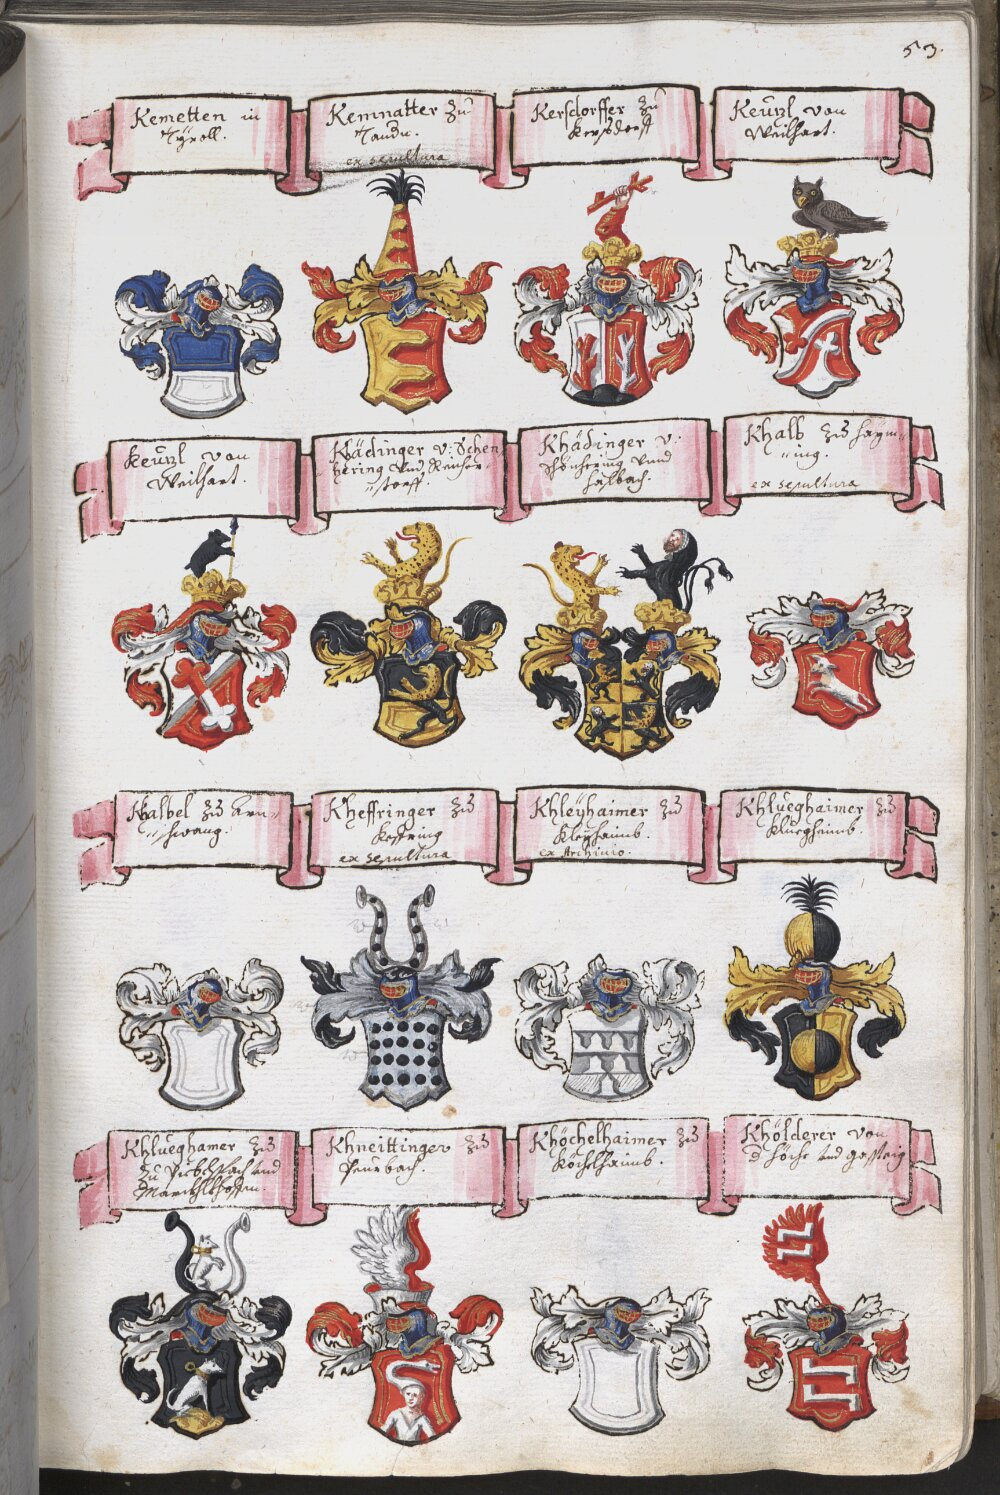 53.
Kemetten in
Tÿroll.
Kemnatter Zu
Tandn.
ex sepultura
Kersdorffer Zu
Kersdorff
Keüzl von
Weilhart.
Keüzl von
Weilhart.
Khädinger v: Schen
hering und
storff.
Khädinger v:
und
halbach.
Khalb Zu haÿm
ing.
ex sepultura
Khalbel Zu Arn
schwang.
Kheffringer Zu
Keffring
ex sepultura
Khleÿhaimer Zu
Kleÿhaimb.
ex Archivio.
Khlueghaimer Zu
Klueghaimb.
Khlueghamer Zu
Zu Pürbach und
Khneittinger Zu
Penrbach.
Khöchelhaimer Zu
Köchlhaimb.
Khölderer von
d höche und gesteig